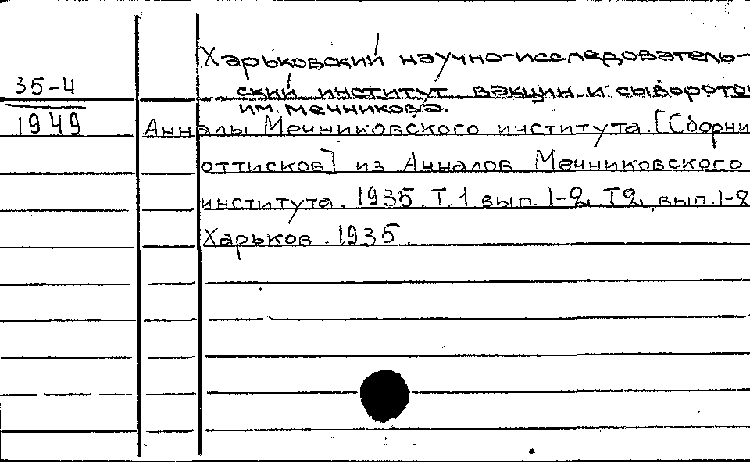 Харьковский научно-исследователь-
35-4
ский институт вакцин и сыворото
им. мечникова.
1949
Анналы Мечниковского института. [Сборни
оттисков] из Анналов Мечниковского
института. 1935. Т.1 вып. 1-2, Т2, вып. 1-2
Харьков. 1935.